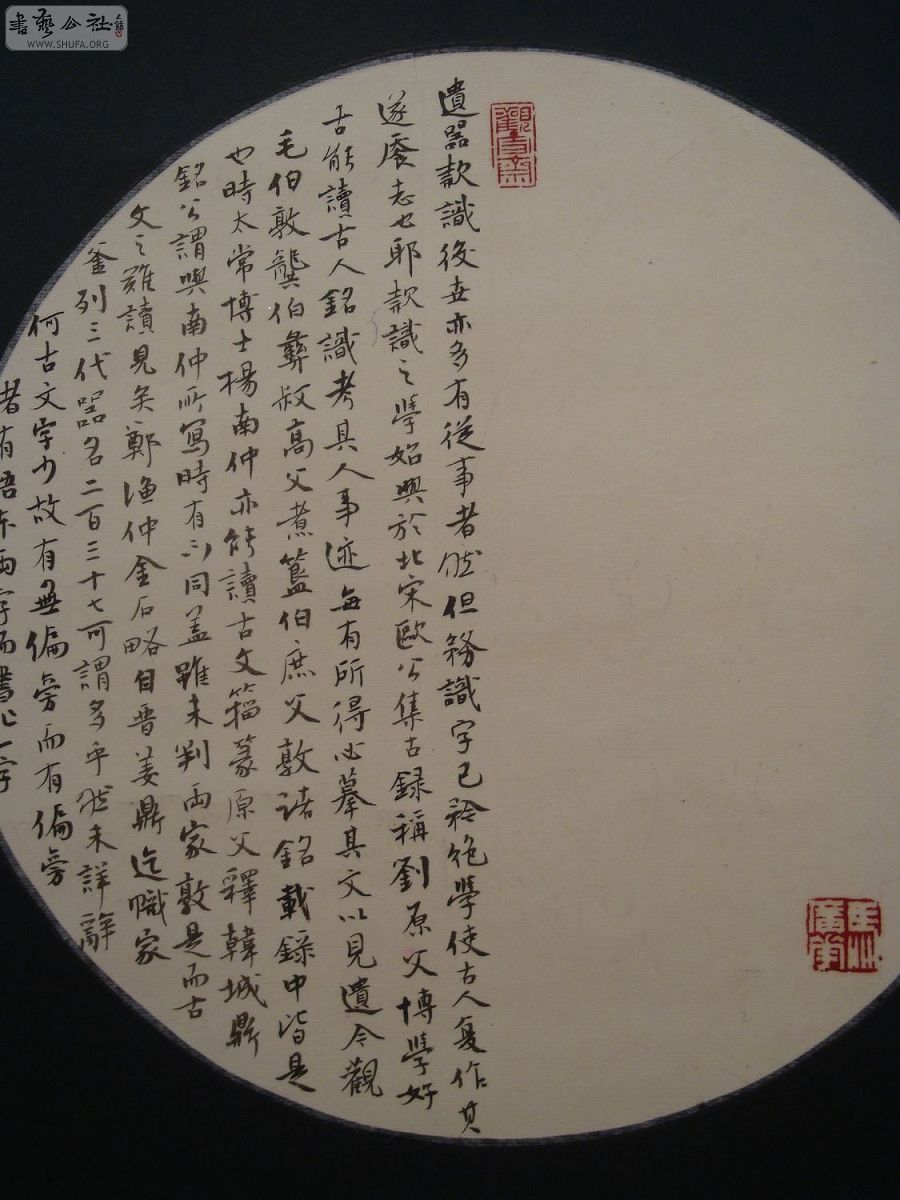 書藝公社
WWW.SHUFA.ORG
遺器款識後世亦多有從事者然但務識字已矜絶學使古人復作其
遂餍志也耶款識之學始興於北宋歐公集古録稱劉原父博學好
古能讀古人銘識考其人事迹每有所得必摹其文以見遺今觀
毛伯敦龔伯彝叔高父煮簋伯庶父敦諸銘載録中皆是
也時太常博士楊南仲亦能讀古文籀篆原父釋韓城鼎
銘公謂與南仲所寫時有不同蓋雖未判兩家敦是而古
文之難讀見矣鄭漁仲金石略自晋姜鼎迄職家
釜列三代器名二百三十七可謂多乎然未詳辭
何古文字少故有無偏旁而有偏旁
者有語本兩字而書止一字